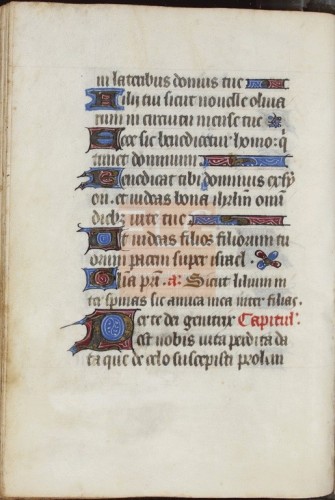 in lateribus domus tue
Filii tui sicut nouelle oliua
rum in circuitu mense tue
Ecce sic benedicetur homo: q̇
timet dominum
Benedicat tibi dominus ex sy
on. et uideas bona ihrl̃m om̃i
diebȝ uite tue
Et uideas filios filiorum tu
orum pacem super israel.
Gl̃ia pr̃i. a: Sicut lilium in
ter spinas sic amica mea inter filias.
Per te dei genitrix Capitul'.
est nobis uita perdita da
ta que de celo suscepisti prolem